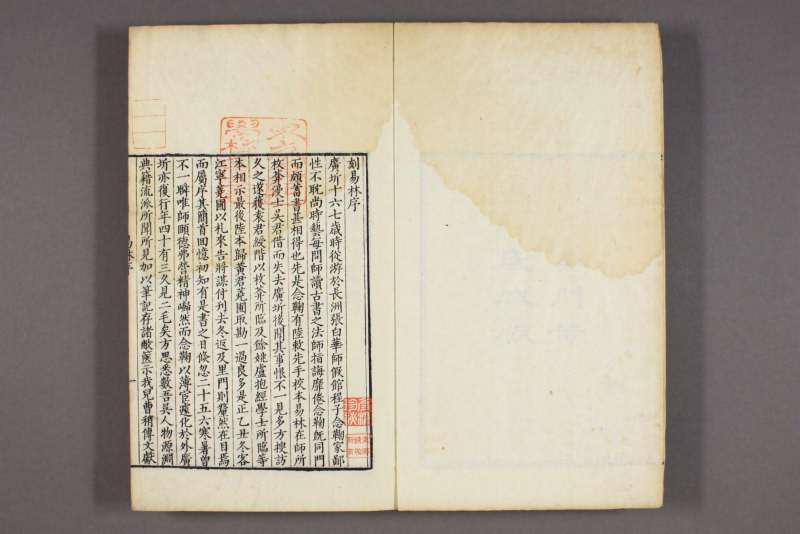 刻易林序
廣圻十六七歲時從游於長洲張白華師假館程子念鞠家鄙
性不耽尚時藝每問師讀古書之法師指誨靡倦念鞠旣同門
而頗蓄書甚相得也先是念鞠有陸敕先手校本易林在師所
枚菴漫士吳君借而失去廣圻後聞其事恨不一見多方搜訪
久之遂獲袁君綬階以枚菴所臨及餘姚盧抱經學士所臨等
本相示最後陸本歸黃君蕘圃取勘一過良多是正乙丑冬客
江寧蕘圃以札來告將謀付刊去冬返及里門則然在目焉
而屬序其簡首回憶初知有是書之日倏忽二十五六寒暑曾
不一瞬唯師頤德弗營精神巋然而念鞠以薄宦遷化於外廣
圻亦復行年四十有三久見二毛矣方思悉數吾吳人物源淵
典籍流派所聞所見加以筆記存諸敝篋示我兒曹稍傳文獻
易林序
一